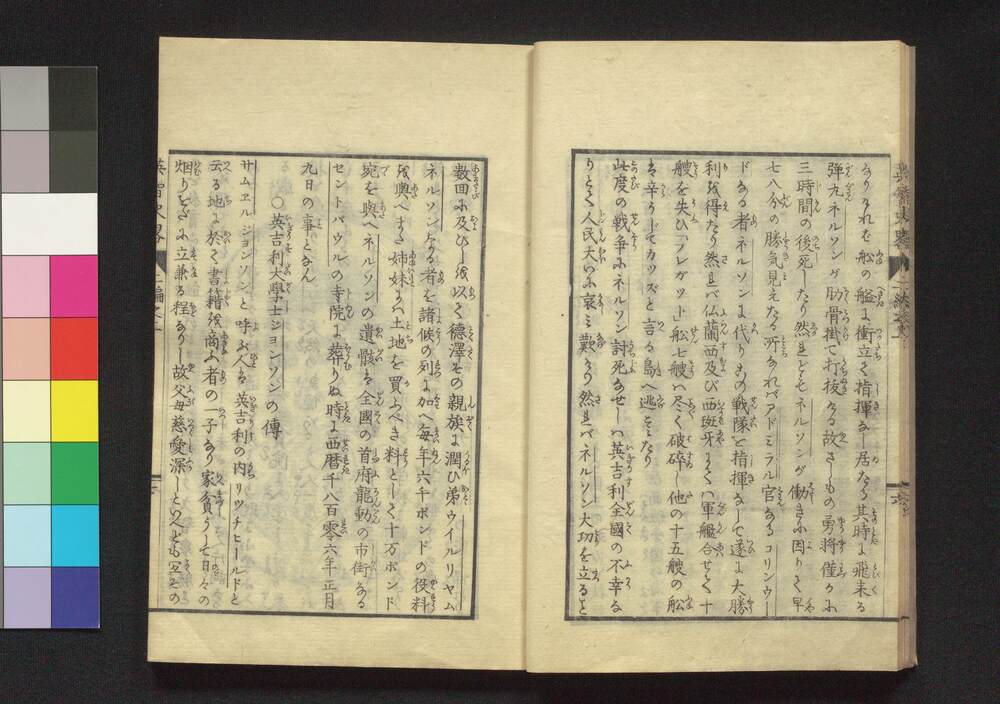 なりければ舩の艫に衝立て指揮なし居たる其時に飛来る
弾丸ネルソンが肋骨掛て打抜ける故さしもの勇将僅かに
三時間の後死したり然れどもネルソンが働きに因りて早
七八分の勝気見えたる所なればアドミラル官なるコリンウー
ドなる者ネルソンに代りその戦隊を指揮なして遂に大勝
利を得たり然れバ仏蘭西及び西班牙にてハ軍艦合せて十
艘を失ひフレガット舩七艘ハ尽く破碎し他の十五艘の舩
は辛うしてカツズと言る島へ逃さたり
此度の戦争にネルソン討死なせしハ英吉利全國の不幸な
りとて人民大いに哀ミ歎けり然れバネルソン大功を立ること
数回に及びしを以て徳澤その親族に潤ひ弟ウイルリヤム
ネルソンなる者を諸侯の列に加へ毎年六千ポンドの役料
を與へまた姉妹にハ土地を買ふべき料として十万ポンド
宛を與へネルソンの遺骸は全國の首府龍動の市街なる
セントパウルの寺院に葬りぬ時に西暦千八百零六年正月
九日の事となん
○英吉利大學士ジヨンソンの傳
サムエルジヨンソンと呼ぶ人は英吉利の内リツチヒールドと
云る地に於て書籍を商ふ者の一子なり家貧うして日々の
烟りさへに立兼る程なりし故父母慈愛深しといへども